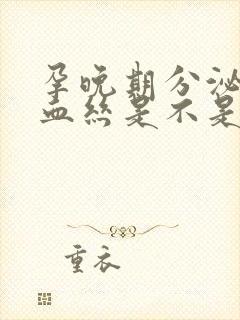 孕晚期分泌
血丝是不是
重衣